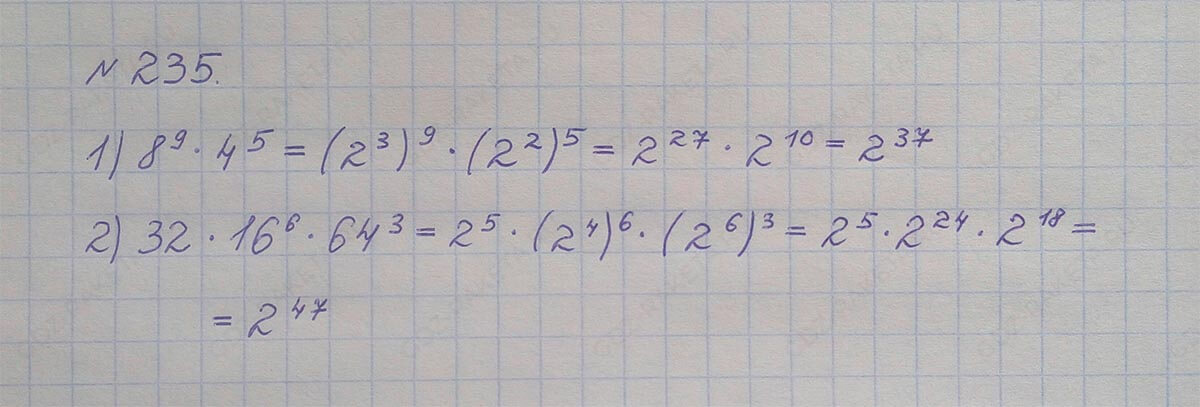 № 235.
1) 8⁹ · 4⁵ = (2³)⁹ · (2²)⁵ = 2²⁷ · 2¹⁰ = 2³⁷
2) 32 · 16⁶ · 64³ = 2⁵ · (2⁴)⁶ · (2⁶)³ = 2⁵ · 2²⁴ · 2¹⁸ =
= 2⁴⁷